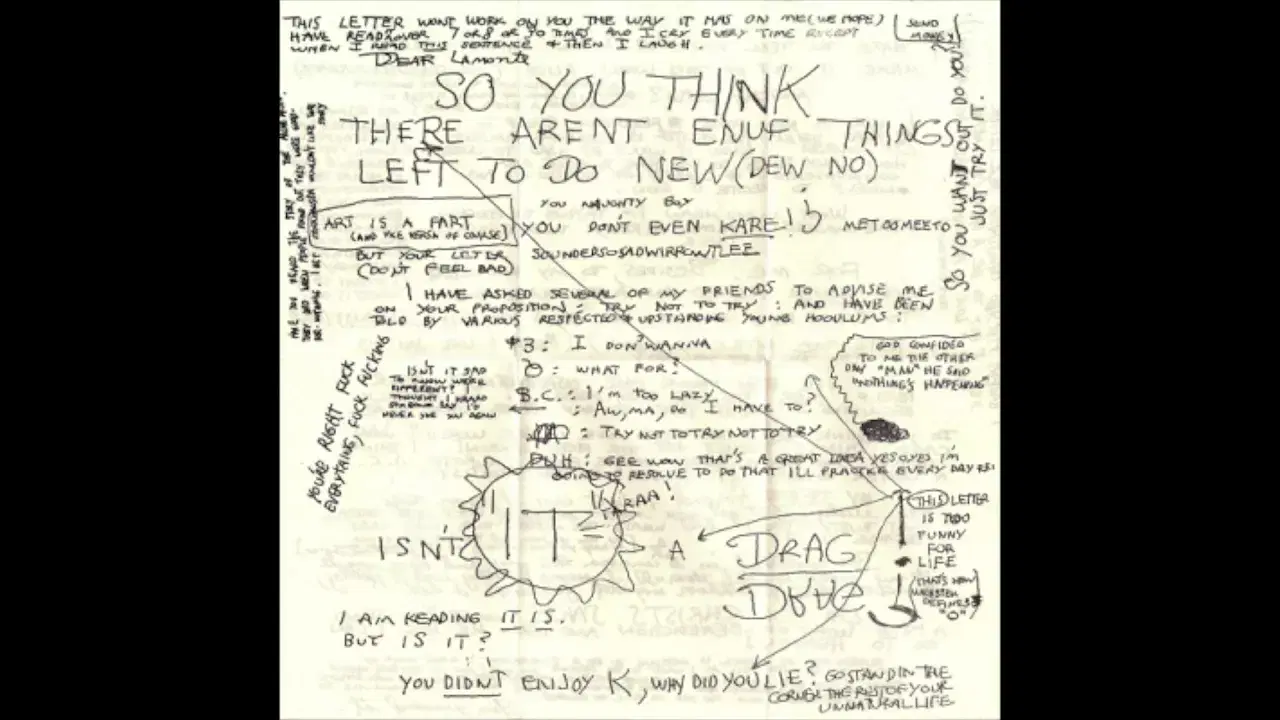 THIS LETTER WONT WORK ON YOU THE WAY IT HAS ON ME (WE HOPE)
HAVE READ OVER 7 OR 8 OR 90 TIMES AND I CRY EVERY TIME EXCEPT
WHEN I READ THIS SENTENCE & THEN I LAUGH.
SEND
MONEY
DEAR LAMONTE
SO YOU THINK
THERE ARENT ENUF THINGS
LEFT TO DO NEW (DEW NO)
SO YOU WANT OUT DO YOU?
JUST TRY IT.
YOU NAUGHTY BOY
ART IS A FART
(AND VICE VERSA OF COURSE)
YOU DON'T EVEN KARE!
METOOMEETO
BUT YOUR LETTER SOUNDERSOSADWIRROWTLEE
(DON'T FEEL BAD)
I HAVE ASKED SEVERAL OF MY FRIENDS TO ADVISE ME
ON YOUR PROPOSITION, TRY NOT TO TRY: AND HAVE BEEN
TOLD BY VARIOUS RESPECTED & UPSTANDING YOUNG HOODLUMS:
#3: I DON'WANNA
: WHAT FOR?
B.C.: I'M TOO LAZY
: AW, MA, DO I HAVE TO?
: TRY NOT TO TRY NOT TO TRY
DUH: GEE WOW THAT'S A GREAT IDEA YESOYES I'M
GOING TO RESOLVE TO DO THAT I'LL PRACTICE EVERY DAY
ISN'T IT SAD
TO KNOW WE'RE
DIFFERENT? I
THOUGHT I HEARD
SOMEONE SAY I'D
NEVER SEE YOU AGAIN
GOD CONFIDED
TO ME THE OTHER
DAY "MAN" HE SAID
"NOTHING'S HAPPENING"
YOU'RE RIGHT FUCK
EVERYTHING, FUCK FUCKING
ISN'T IT A DRAG
DRAG
THIS LETTER
IS TOO
FUNNY
FOR
LIFE
(THAT'S HOW
WEBSTER
DEFINES
"O")
I AM READING IT IS.
BUT IS IT?
YOU DIDNT ENJOY K, WHY DID YOU LIE? GO STAND IN THE
CORNER THE REST OF YOUR
UNNATURAL LIFE